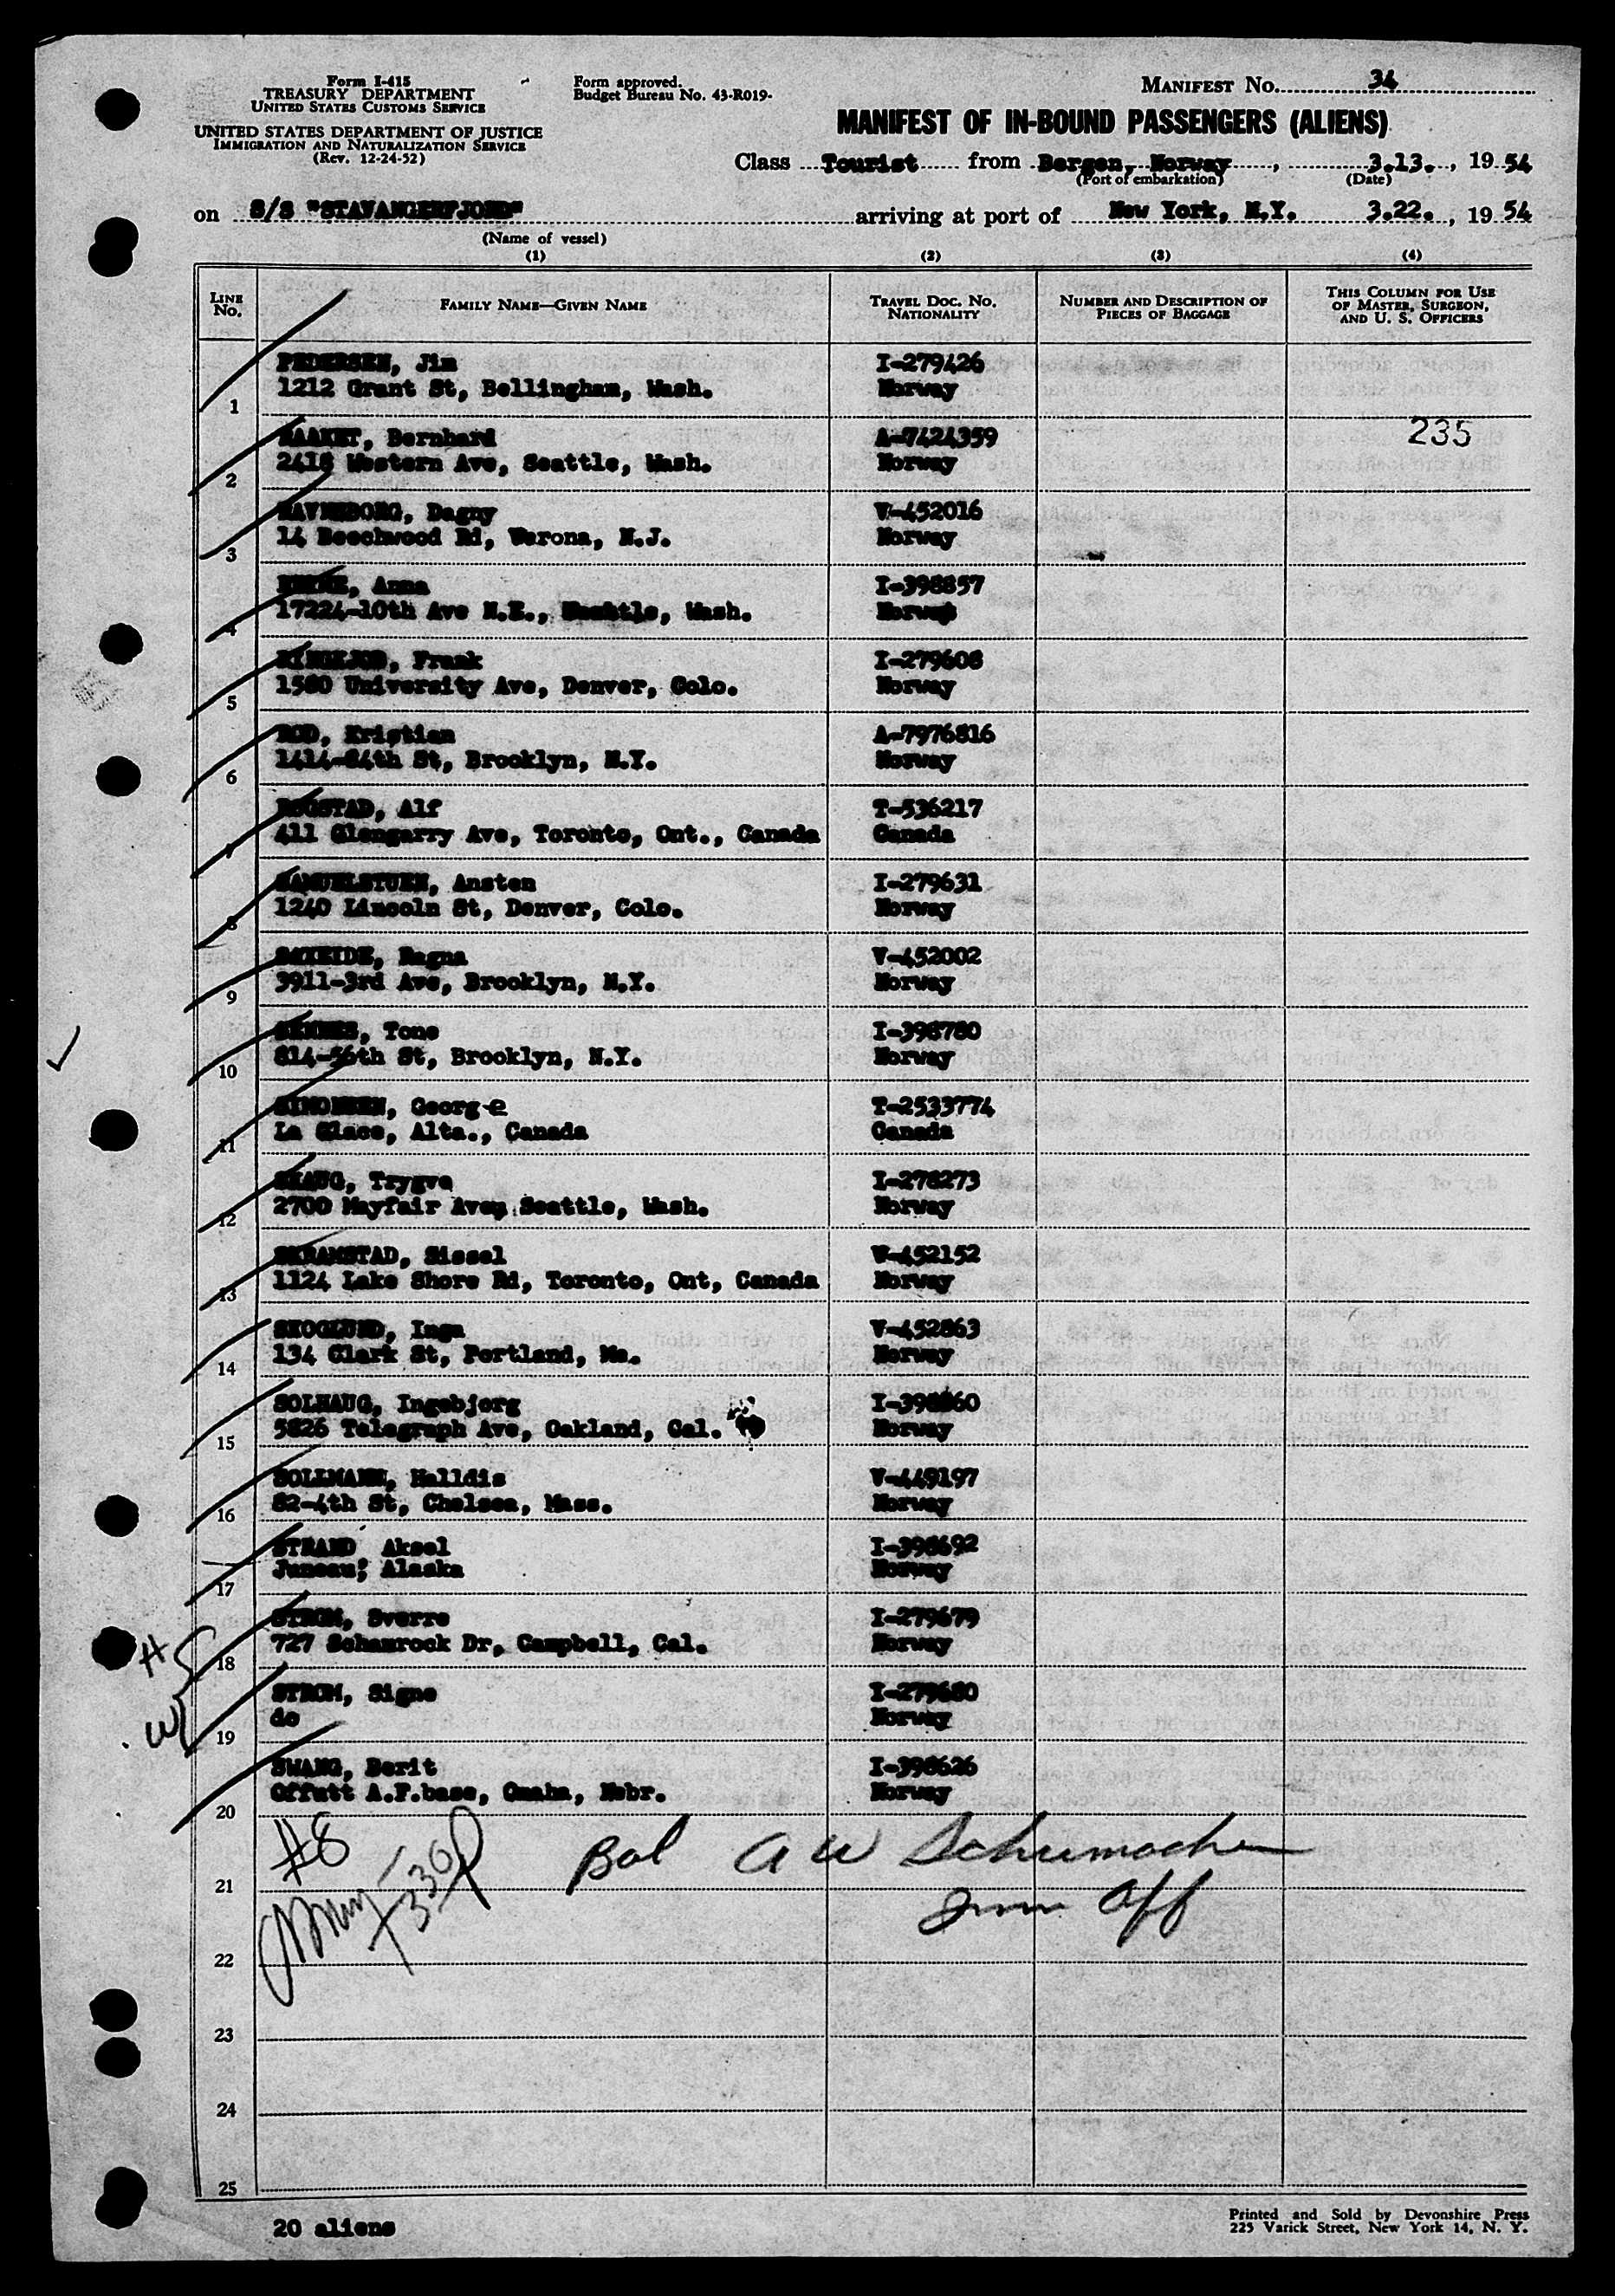 Form I-415
TREASURY DEPARTMENT
UNITED STATES CUSTOMS SERVICE
UNITED STATES DEPARTMENT OF JUSTICE
IMMIGRATION AND NATURALIZATION SERVICE
(Rev. 12-24-52)
Form approved.
Budget Bureau No. 43-R019-
MANIFEST No. 34
MANIFEST OF IN-BOUND PASSENGERS (ALIENS)
Class Tourist from Bergen, Norway, 3.13., 19 54
(Port of embarkation) (Date)
on S/S "STAVANGERFJORD" arriving at port of New York, N.Y. 3.22., 19 54
(Name of vessel)
(1) (2) (3) (4)
LINE No. FAMILY NAME—GIVEN NAME TRAVEL DOC. No. NATIONALITY NUMBER AND DESCRIPTION OF PIECES OF BAGGAGE THIS COLUMN FOR USE OF MASTER, SURGEON, AND U. S. OFFICERS
PEDERSEN, Jim I-279426
1 1212 Grant St, Bellingham, Wash. Norway
Bernhard A-7424359 235
2 2418 Western Ave, Seattle, Wash. Norway
Dagny V-452016
3 14 Beechwood Rd, Verona, N.J. Norway
Anna I-398857
4 17224-10th Ave N.E., Seattle, Wash. Norway
Frank I-279608
5 1580 University Ave, Denver, Colo. Norway
ROD, Kristian A-7976816
6 1414-84th St, Brooklyn, N.Y. Norway
ROGSTAD, Alf T-536217
7 411 Glengarry Ave, Toronto, Ont., Canada Canada
SAMUELSTUEN, Ansten I-279631
8 1240 Lincoln St, Denver, Colo. Norway
SAXEIDE, Ragna V-452002
9 3911-3rd Ave, Brooklyn, N.Y. Norway
Tone I-398780
10 814-56th St, Brooklyn, N.Y. Norway
SIMONSEN, George T-2533774
11 La Glace, Alta., Canada Canada
SKAUG, Trygve I-278273
12 2700 Mayfair Ave, Seattle, Wash. Norway
SKRAMSTAD, Sissel V-452152
13 1124 Lake Shore Rd, Toronto, Ont, Canada Norway
SKOGLUND, Inga V-452863
14 134 Clark St, Portland, Me. Norway
SOLHAUG, Ingebjorg I-398860
15 5826 Telegraph Ave, Oakland, Cal. Norway
SOLLMANN, Halldis V-449197
16 82-4th St, Chelsea, Mass. Norway
STRAND Aksel I-398692
17 Juneau, Alaska Norway
STROM, Sverre I-279679
18 727 Schamrock Dr, Campbell, Cal. Norway
STROM, Signe I-279680
19 do Norway
SWANG, Berit I-398626
20 Offutt A.F.base, Omaha, Nebr. Norway
#8 Bol A W Schumacher
21 Imm Off
22
23
24
25
20 aliens
Printed and Sold by Devonshire Press
225 Varick Street, New York 14, N. Y.